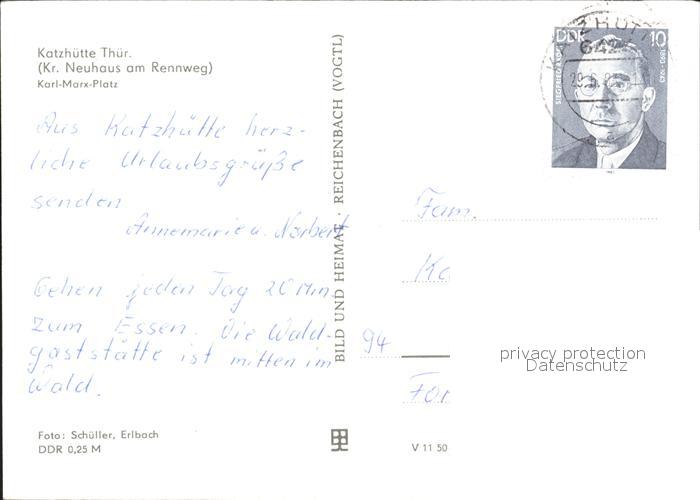 Katzhütte Thür.
(Kr. Neuhaus am Rennweg)
Karl-Marx-Platz
Aus Katzhütte herz-
liche Urlaubsgrüße
senden
Annemarie u. Norbert
Gehen jeden Tag 20 Min.
zum Essen. Die Wald-
gaststätte ist mitten im
Wald.
Foto: Schüller, Erlbach
DDR 0,25 M
BILD UND HEIMAT REICHENBACH (VOGTL)
KATZHÜTTE
642
DDR 10
1890-1943
Fam.
Ka
94
privacy protection
Datenschutz
V 11 50